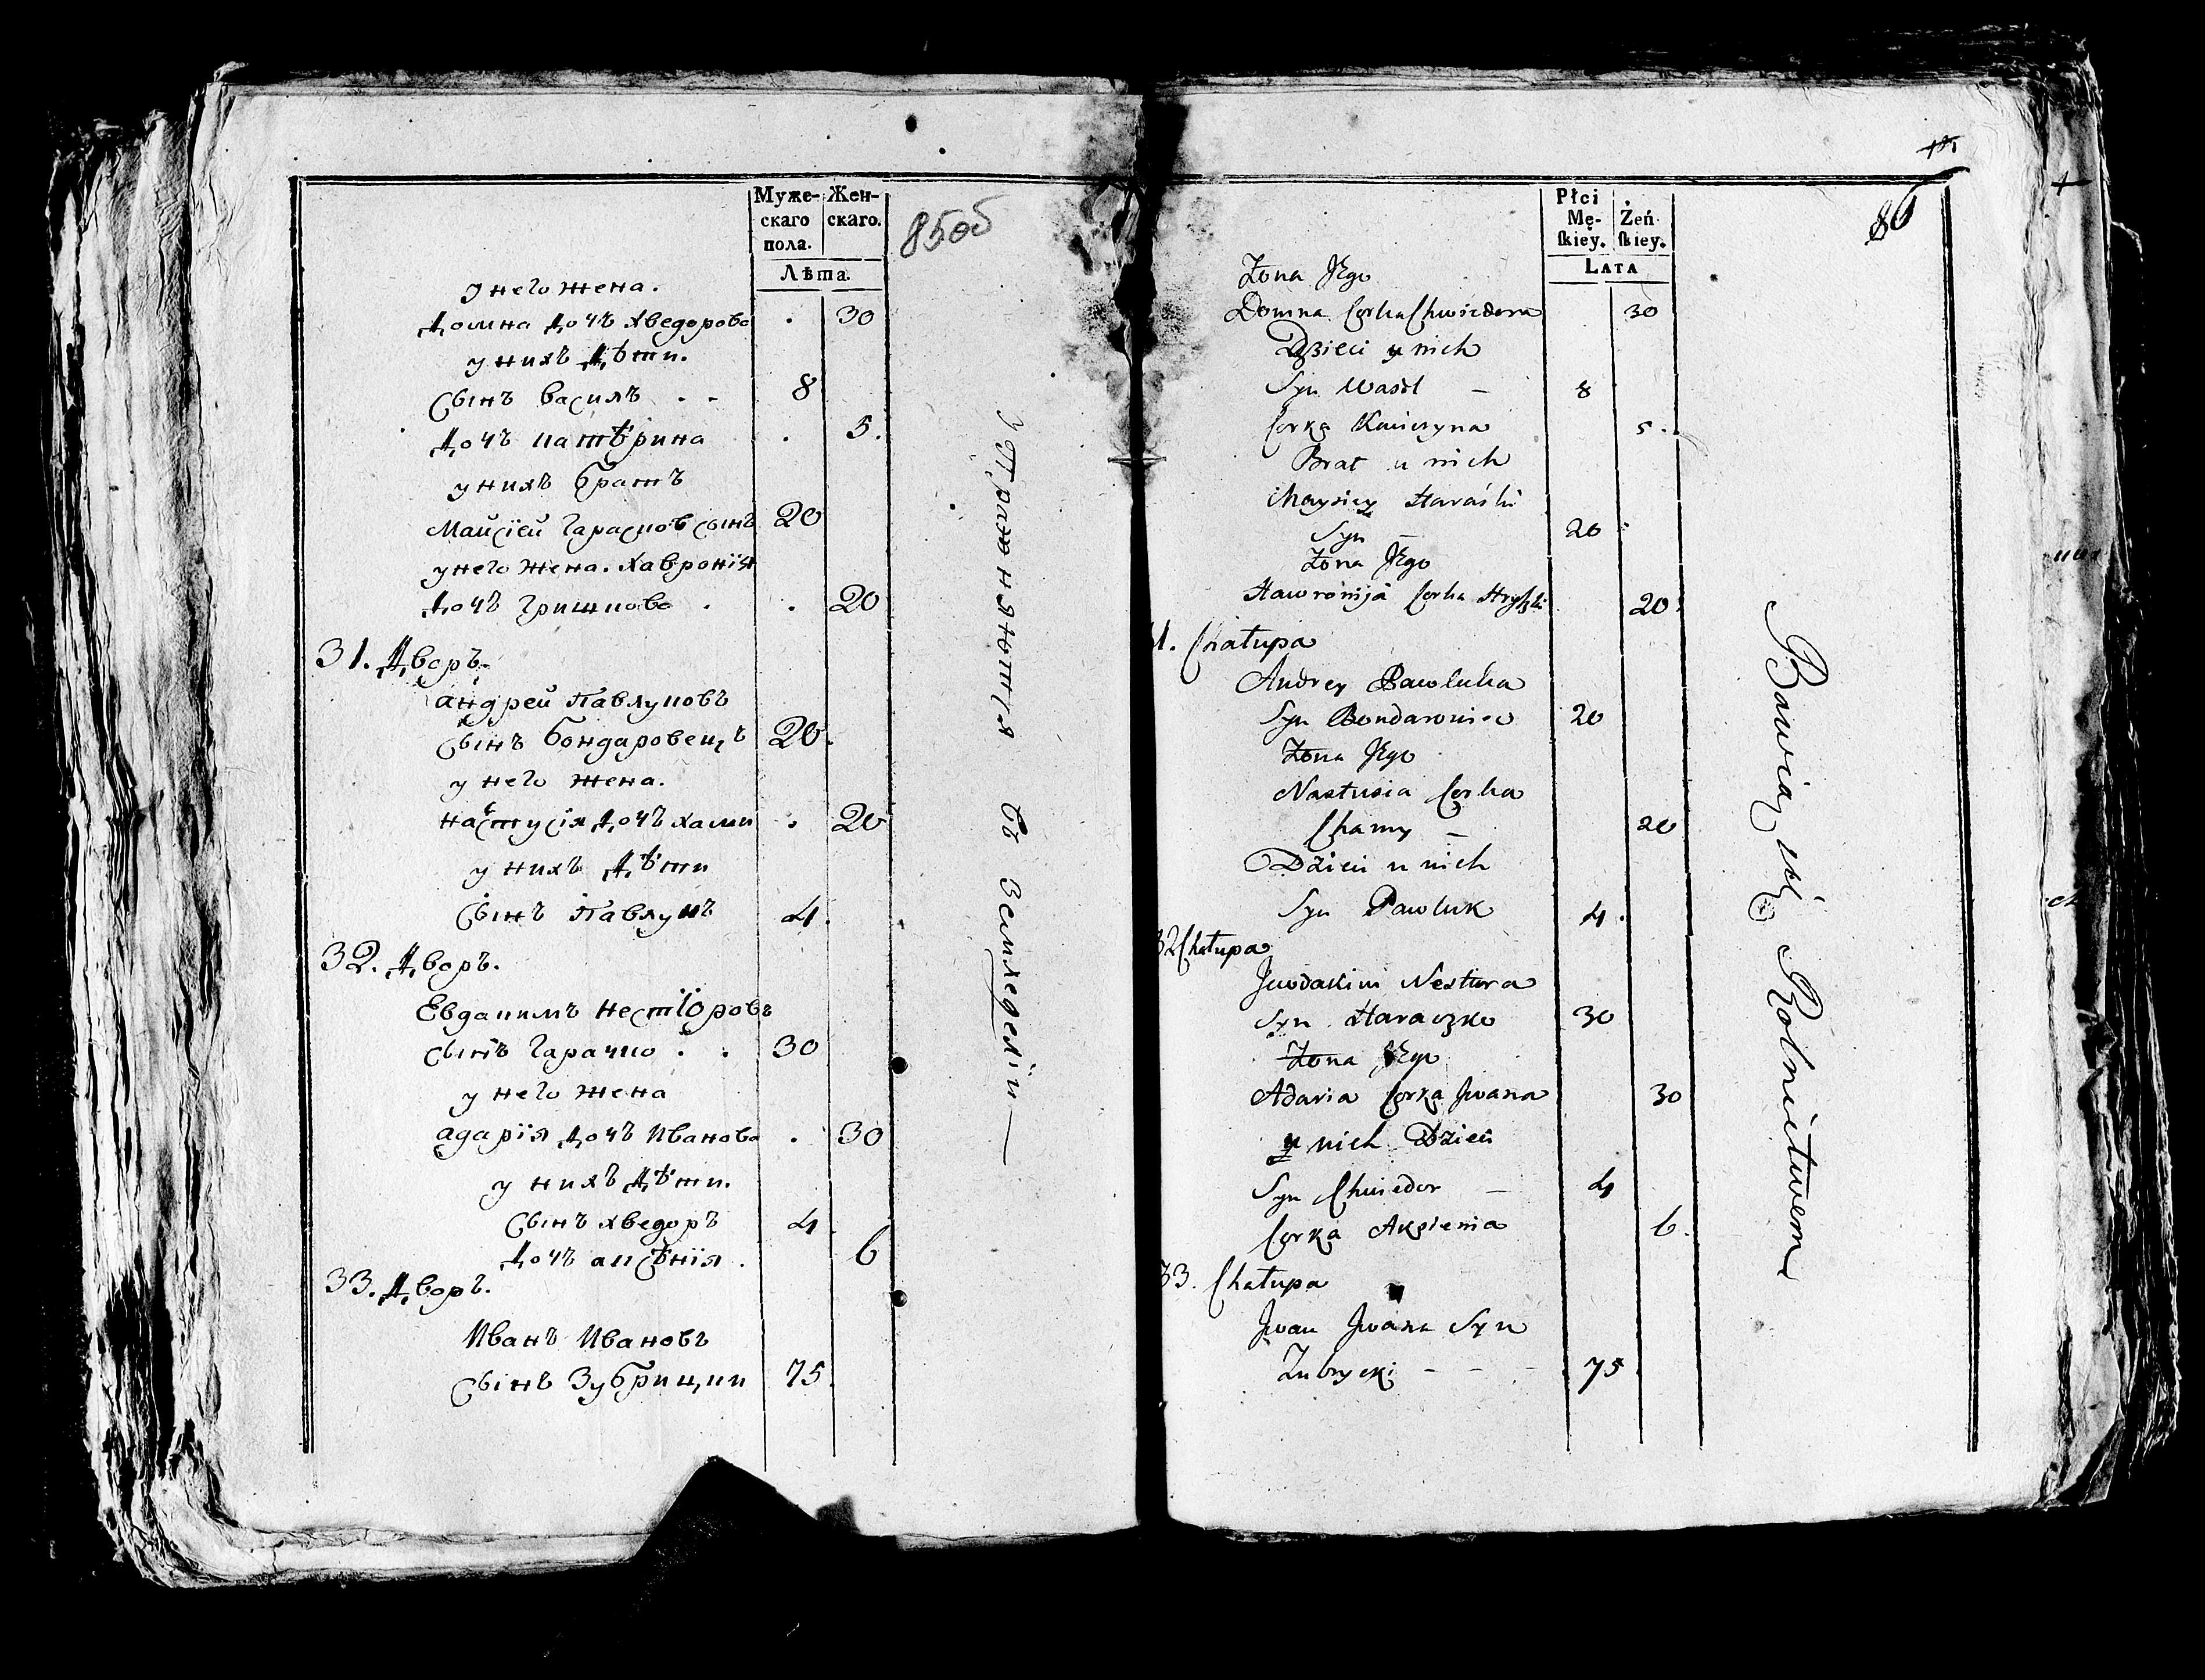 Муже-
скаго
пола.
Жен-
скаго.
Лѣта.
85об
у него жена.
Домна дочъ хведорова . 30
у нихъ Дѣти.
Сынъ василъ . . 8
Дочъ катѣрина . 5.
у нихъ братъ
Майсїей Гараськовъ сынъ 20
у него жена. Хавронїя
дочъ Гришкова . . 20
31. Дворъ
андрей Павлуковъ
Сынъ бондаровецъ 20.
у него жена.
настусїя Дочъ хами . 20
у нихъ Дѣти
Сынъ Павлукъ 4.
32. Дворъ.
Евдакимъ нестїоровъ
сынъ Гарачко . . 30
у него жена
адарїя Дочъ Иванова . 30
у нихъ Дѣти.
Сынъ хведоръ 4.
Дочъ аксѣнїя . 6
33. Дворъ.
Иванъ Ивановъ
Сынъ Зубрицки 75.
упражняются въ Земледелїи
Płci
Mę-
skiey.
Żeń
skiey.
LATA
86
Żona Jego
Domna Corka Chwiedora 30
Dzieci u nich
Syn Wasil – 8
Corka Kacieryna 5.
Brat u nich
Maysiey Haraśki
Syn – 20
Żona Jego
Hawronija Corka Hryszki 20
1. Chałupa
Andrey Pawluka
Syn Bondarowiec 20
Żona Jego
Nastusia Corka
Chamy – 20
Dzieci u nich
Syn Pawluk 4.
32 Chałupa
Jewdakim Nestora
Syn Haraczko 30
Żona Jego
Adaria Corka Jwana 30
u nich Dzieci
Syn Chwiedor – 4
Corka Aksienia 6.
33. Chałupa
Jwan Jwana Syn
Zubrycki – – – 75
Bawią się Rolnictwem